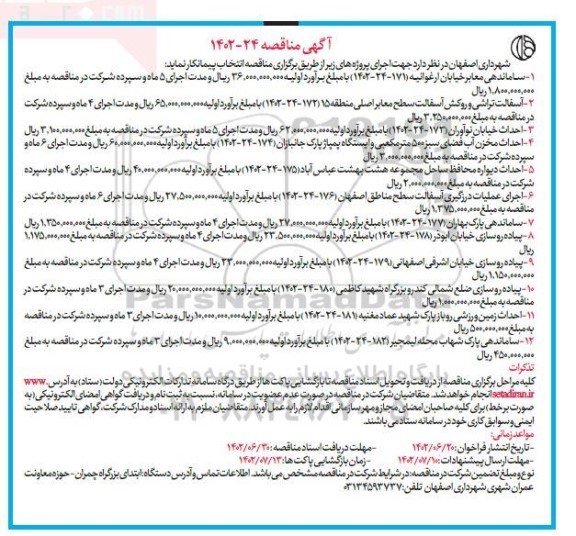 آگهی مناقصه ۲۴-۱۴۰۲
شهرداری اصفهان در نظر دارد جهت اجرای پروژه‌های زیر از طریق برگزاری مناقصه انتخاب پیمانکار نماید:
۱-ساماندهی معابر خیابان ارغوانیه (۱۷۱-۲۴-۱۴۰۲) با مبلغ برآورد اولیه ۳۶.۰۰۰.۰۰۰.۰۰۰ ریال و مدت اجرای ۵ ماه و سپرده شرکت در مناقصه به مبلغ
۱.۸۰۰.۰۰۰.۰۰۰ ریال
۲-آسفالت تراشی و روکش آسفالت سطح معابر اصلی منطقه ۱۵ (۱۷۲-۲۴-۱۴۰۲) با مبلغ برآورد اولیه ۶۵.۰۰۰.۰۰۰.۰۰۰ ریال و مدت اجرای ۴ ماه و سپرده شرکت
در مناقصه به مبلغ ۳.۲۵۰.۰۰۰.۰۰۰ ریال
۳-احداث خیابان نوآوران (۱۷۳-۲۴-۱۴۰۲) با مبلغ برآورد اولیه ۶۲.۰۰۰.۰۰۰.۰۰۰ ریال و مدت اجرای ۵ ماه و سپرده شرکت در مناقصه به مبلغ ۳.۱۰۰.۰۰۰.۰۰۰ ریال
۴-احداث مخزن آب فضای سبز ۵۰۰ متر مکعبی و ایستگاه پمپاژ پارک جانبازان (۱۷۴-۲۴-۱۴۰۲) با مبلغ برآورد اولیه ۶۰.۰۰۰.۰۰۰.۰۰۰ ریال و مدت اجرای ۶ ماه و
سپرده شرکت در مناقصه به مبلغ ۳.۰۰۰.۰۰۰.۰۰۰ ریال
۵-احداث دیواره محافظ ساحل مجموعه هشت بهشت عباس آباد (۱۷۵-۲۴-۱۴۰۲) با مبلغ برآورد اولیه ۴۰.۰۰۰.۰۰۰.۰۰۰ ریال و مدت اجرای ۴ ماه و سپرده
شرکت در مناقصه به مبلغ ۲.۰۰۰.۰۰۰.۰۰۰ ریال
۶-اجرای عملیات درزگیری آسفالت سطح مناطق اصفهان (۱۷۶-۲۴-۱۴۰۲) با مبلغ برآورد اولیه ۲۷.۵۰۰.۰۰۰.۰۰۰ ریال و مدت اجرای ۶ ماه و سپرده شرکت در
مناقصه به مبلغ ۱.۳۷۵.۰۰۰.۰۰۰ ریال
۷-ساماندهی پارک بهاران (۱۷۷-۲۴-۱۴۰۲) با مبلغ برآورد اولیه ۲۷.۰۰۰.۰۰۰.۰۰۰ ریال و مدت اجرای ۴ ماه و سپرده شرکت در مناقصه به مبلغ ۱.۳۵۰.۰۰۰.۰۰۰ ریال
۸-پیاده روسازی خیابان ابوذر (۱۷۸-۲۴-۱۴۰۲) با مبلغ برآورد اولیه ۲۳.۵۰۰.۰۰۰.۰۰۰ ریال و مدت اجرای ۴ ماه و سپرده شرکت در مناقصه به مبلغ ۱.۱۷۵.۰۰۰.۰۰۰
ریال
۹-پیاده روسازی خیابان اشرفی اصفهانی (۱۷۹-۲۴-۱۴۰۲) با مبلغ برآورد اولیه ۲۳.۰۰۰.۰۰۰.۰۰۰ ریال و مدت اجرای ۴ ماه و سپرده شرکت در مناقصه به مبلغ
۱.۱۵۰.۰۰۰.۰۰۰ ریال
۱۰-پیاده روسازی ضلع شمالی کندرو بزرگراه شهید کاظمی (۱۸۰-۲۴-۱۴۰۲) با مبلغ برآورد اولیه ۲۰.۰۰۰.۰۰۰.۰۰۰ ریال و مدت اجرای ۳ ماه و سپرده شرکت در
مناقصه به مبلغ ۱.۰۰۰.۰۰۰.۰۰۰ ریال
۱۱-احداث زمین ورزشی روباز پارک شهید عماد مغنیه (۱۸۱-۲۴-۱۴۰۲) با مبلغ برآورد اولیه ۱۰.۰۰۰.۰۰۰.۰۰۰ ریال و مدت اجرای ۳ ماه و سپرده شرکت در مناقصه
به مبلغ ۵۰۰.۰۰۰.۰۰۰ ریال
۱۲-ساماندهی پارک شهاب محله لیمجیر (۱۸۲-۲۴-۱۴۰۲) با مبلغ برآورد اولیه ۹.۰۰۰.۰۰۰.۰۰۰ ریال و مدت اجرای ۳ ماه و سپرده شرکت در مناقصه به مبلغ
۴۵۰.۰۰۰.۰۰۰ ریال
تذکرات
کلیه مراحل برگزاری مناقصه از دریافت و تحویل اسناد مناقصه تا بازگشایی پاکت ها از طریق درگاه سامانه تدارکات الکترونیکی دولت (ستاد) به آدرس www.
setadiran.ir انجام خواهد شد. متقاضیان شرکت در مناقصه در صورت عدم عضویت در سامانه، نسبت به ثبت نام و دریافت گواهی امضای الکترونیکی (به
صورت برخط) برای کلیه صاحبان امضای مجاز و مهر سازمانی اقدام لازم را به عمل آورند. متقاضیان ملزم به ارائه اسناد و مدارک شرکت، گواهی تایید صلاحیت
ایمنی و سوابق کاری خود در سامانه ستاد می باشند.
مواعد زمانی:
-تاریخ انتشار فراخوان: ۱۴۰۲/۰۶/۲۰ -مهلت دریافت اسناد مناقصه: ۱۴۰۲/۰۶/۳۰
-مهلت ارسال پیشنهادات: ۱۴۰۲/۰۷/۱۰ -زمان بازگشایی پاکت ها: ۱۴۰۲/۰۷/۱۳
نوع و مبلغ تضمین شرکت در مناقصه: در شرایط شرکت در مناقصه مشخص می باشد. اطلاعات تماس و آدرس دستگاه: ابتدای بزرگراه چمران - حوزه معاونت
عمران شهری شهرداری اصفهان تلفن: ۰۳۱۳۴۵۹۳۷۳۷